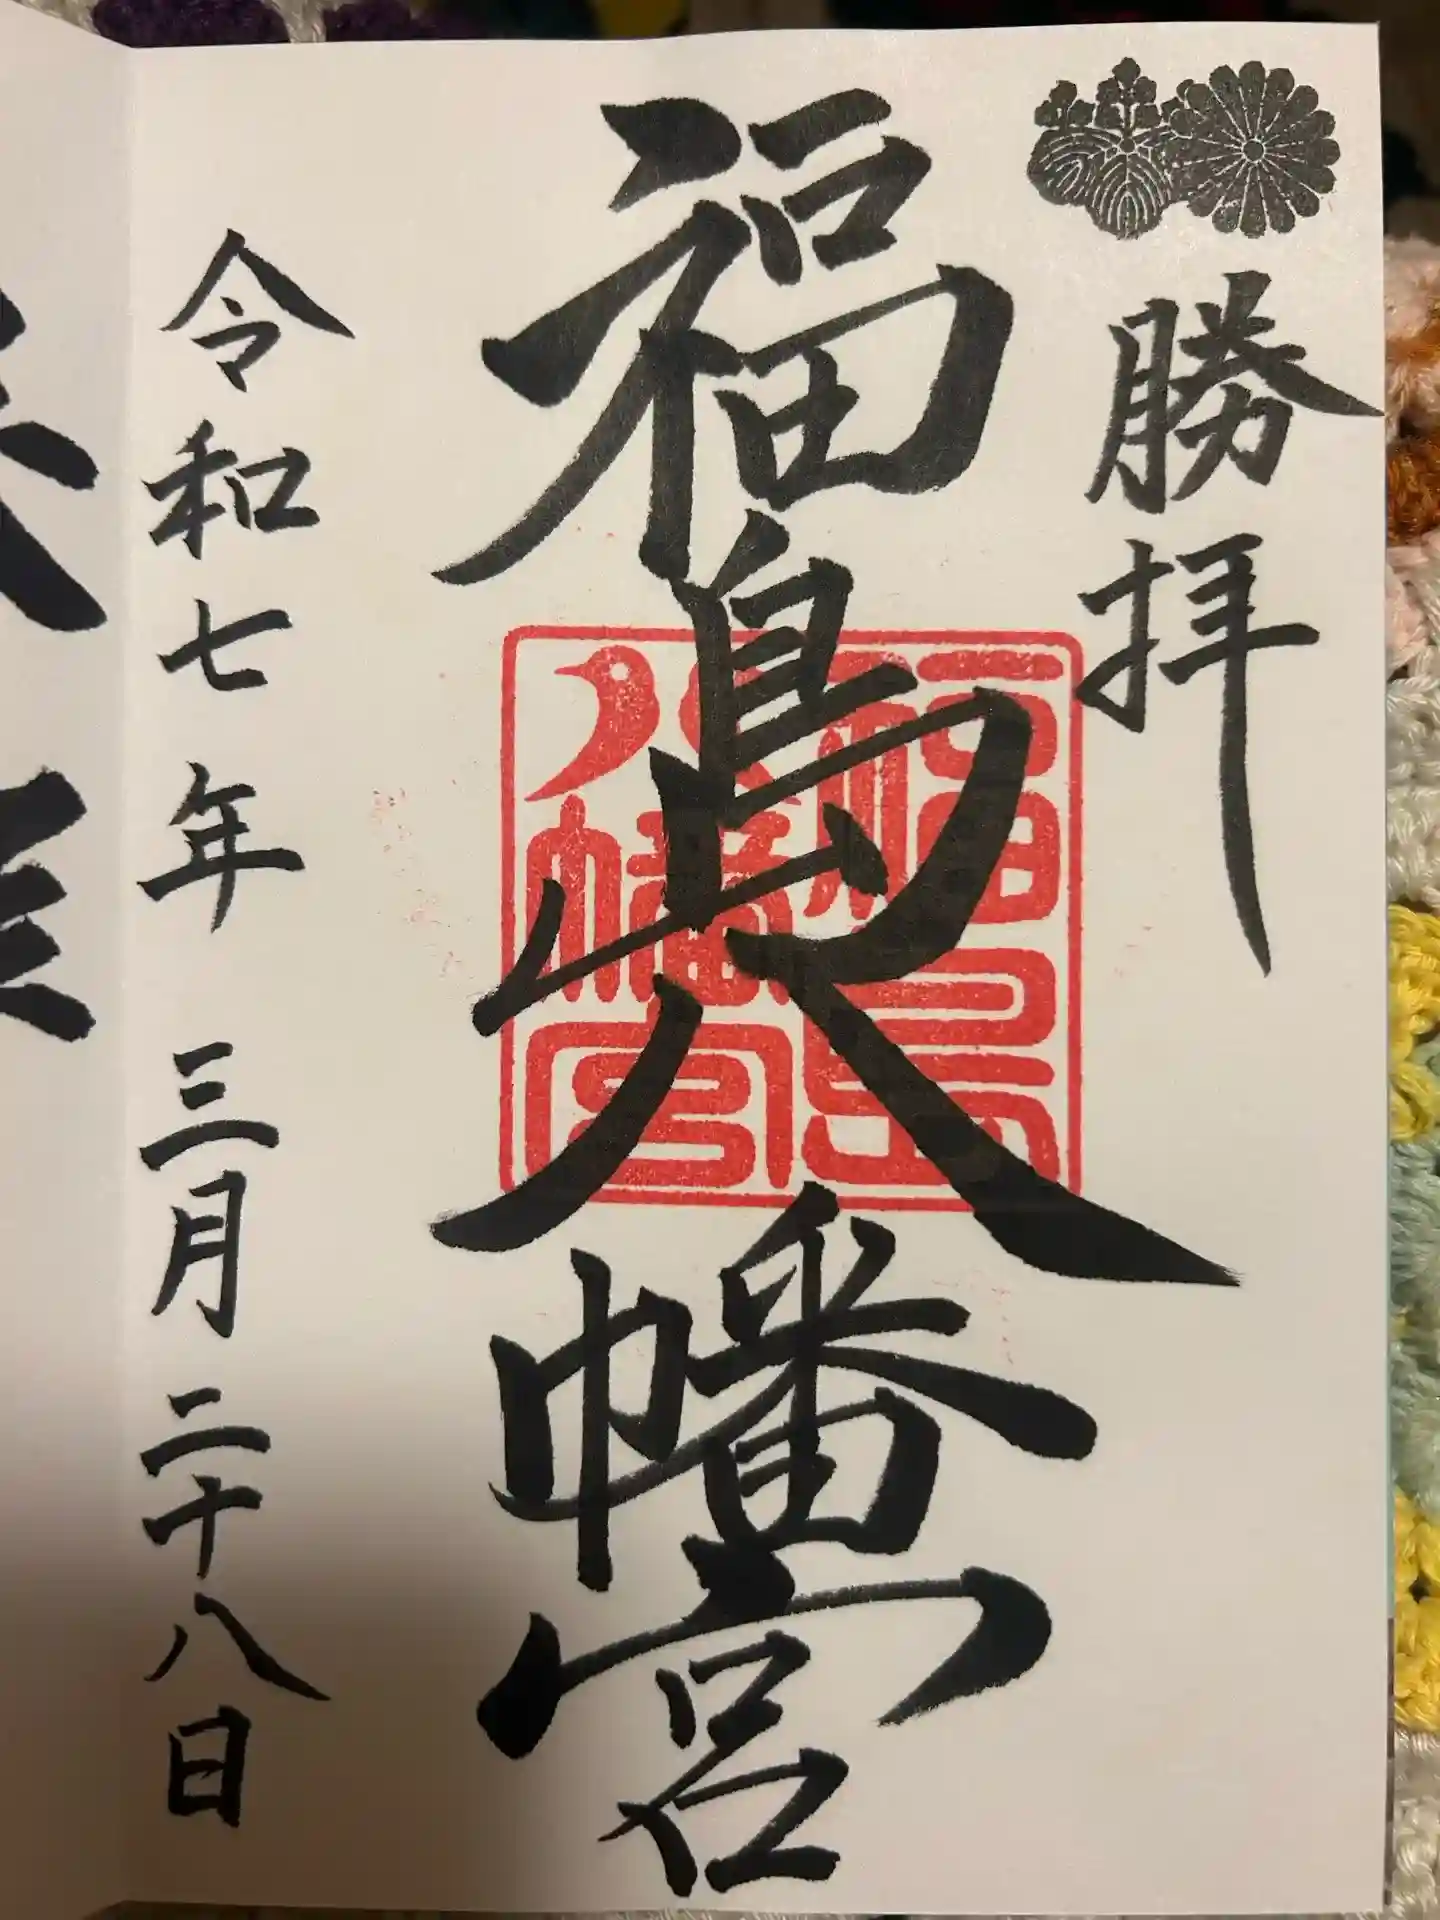 勝拝
福島八幡宮
福島八幡宮
令和七年 三月二十八日